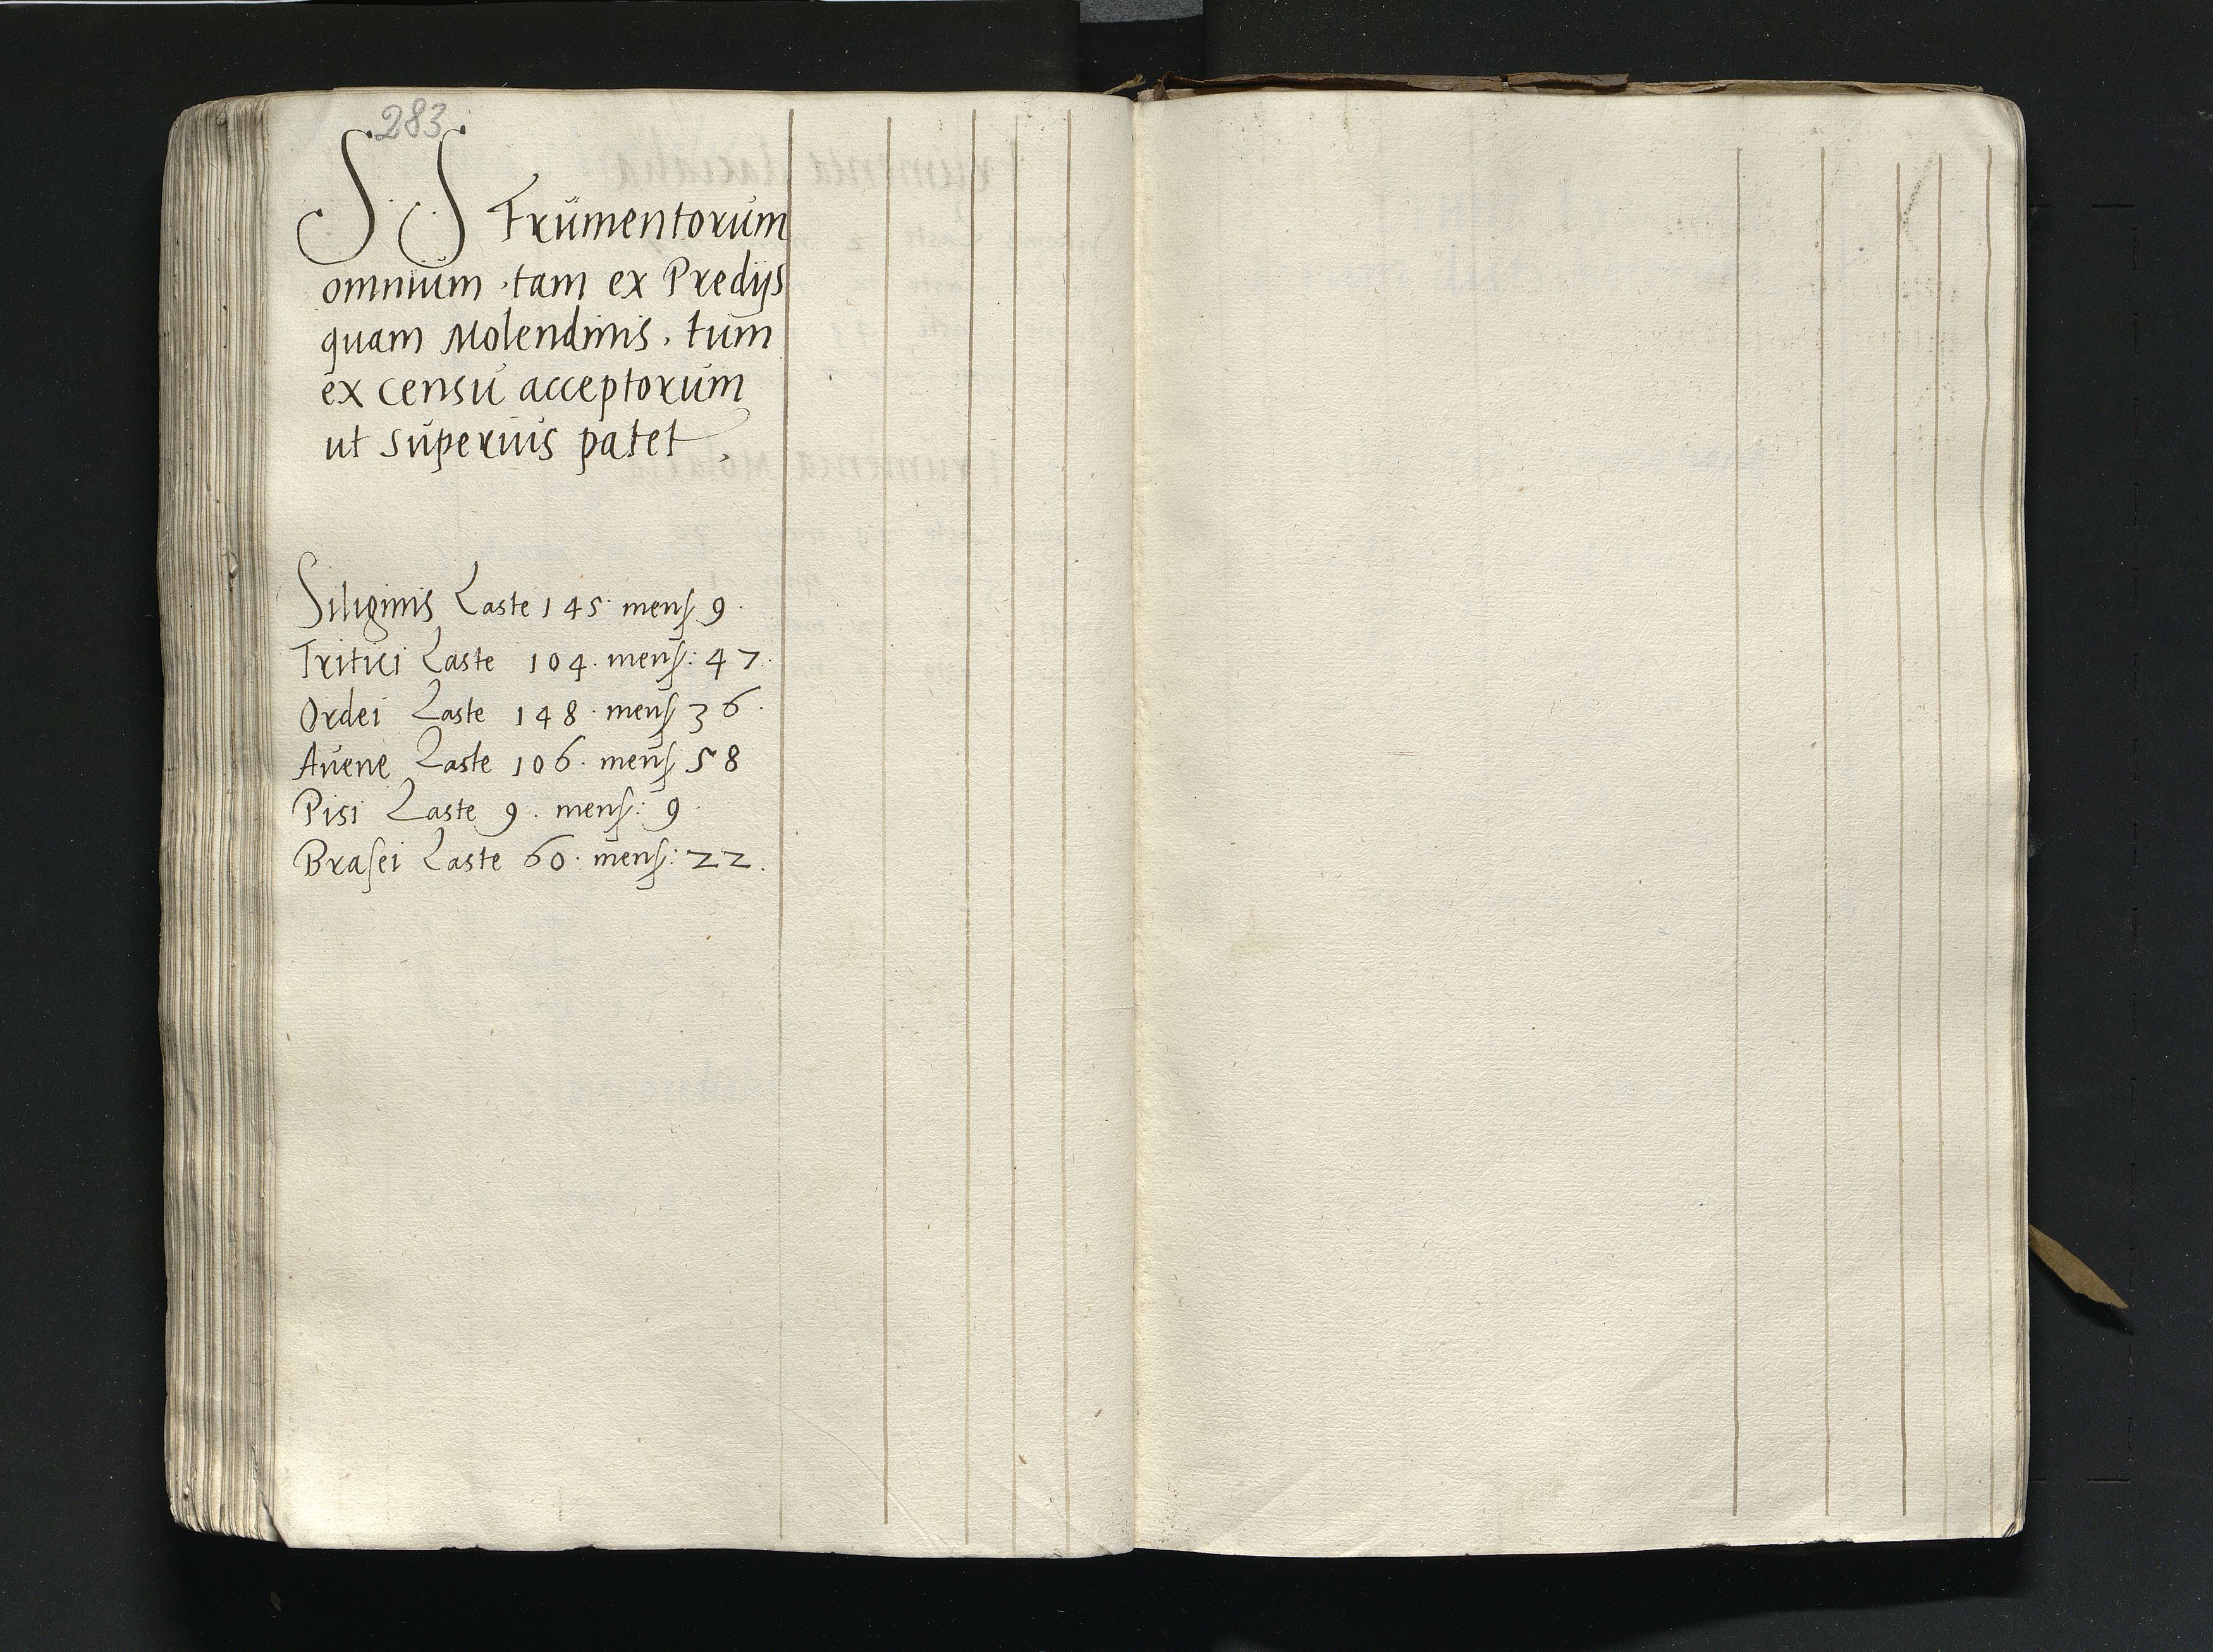 283
S S Frumentorum
omnium tam ex Predijs
quam Molendinis, tum
ex censu acceptorum
ut superius patet.
Siliginis Laste 145 mens 9.
Tritici Laste 104. mens: 47.
Ordei Laste 148. mens 36.
Avene Laste 106. mens 58
Pisi Laste 9. mens: 9.
Brasei Laste 60. mens: 22.